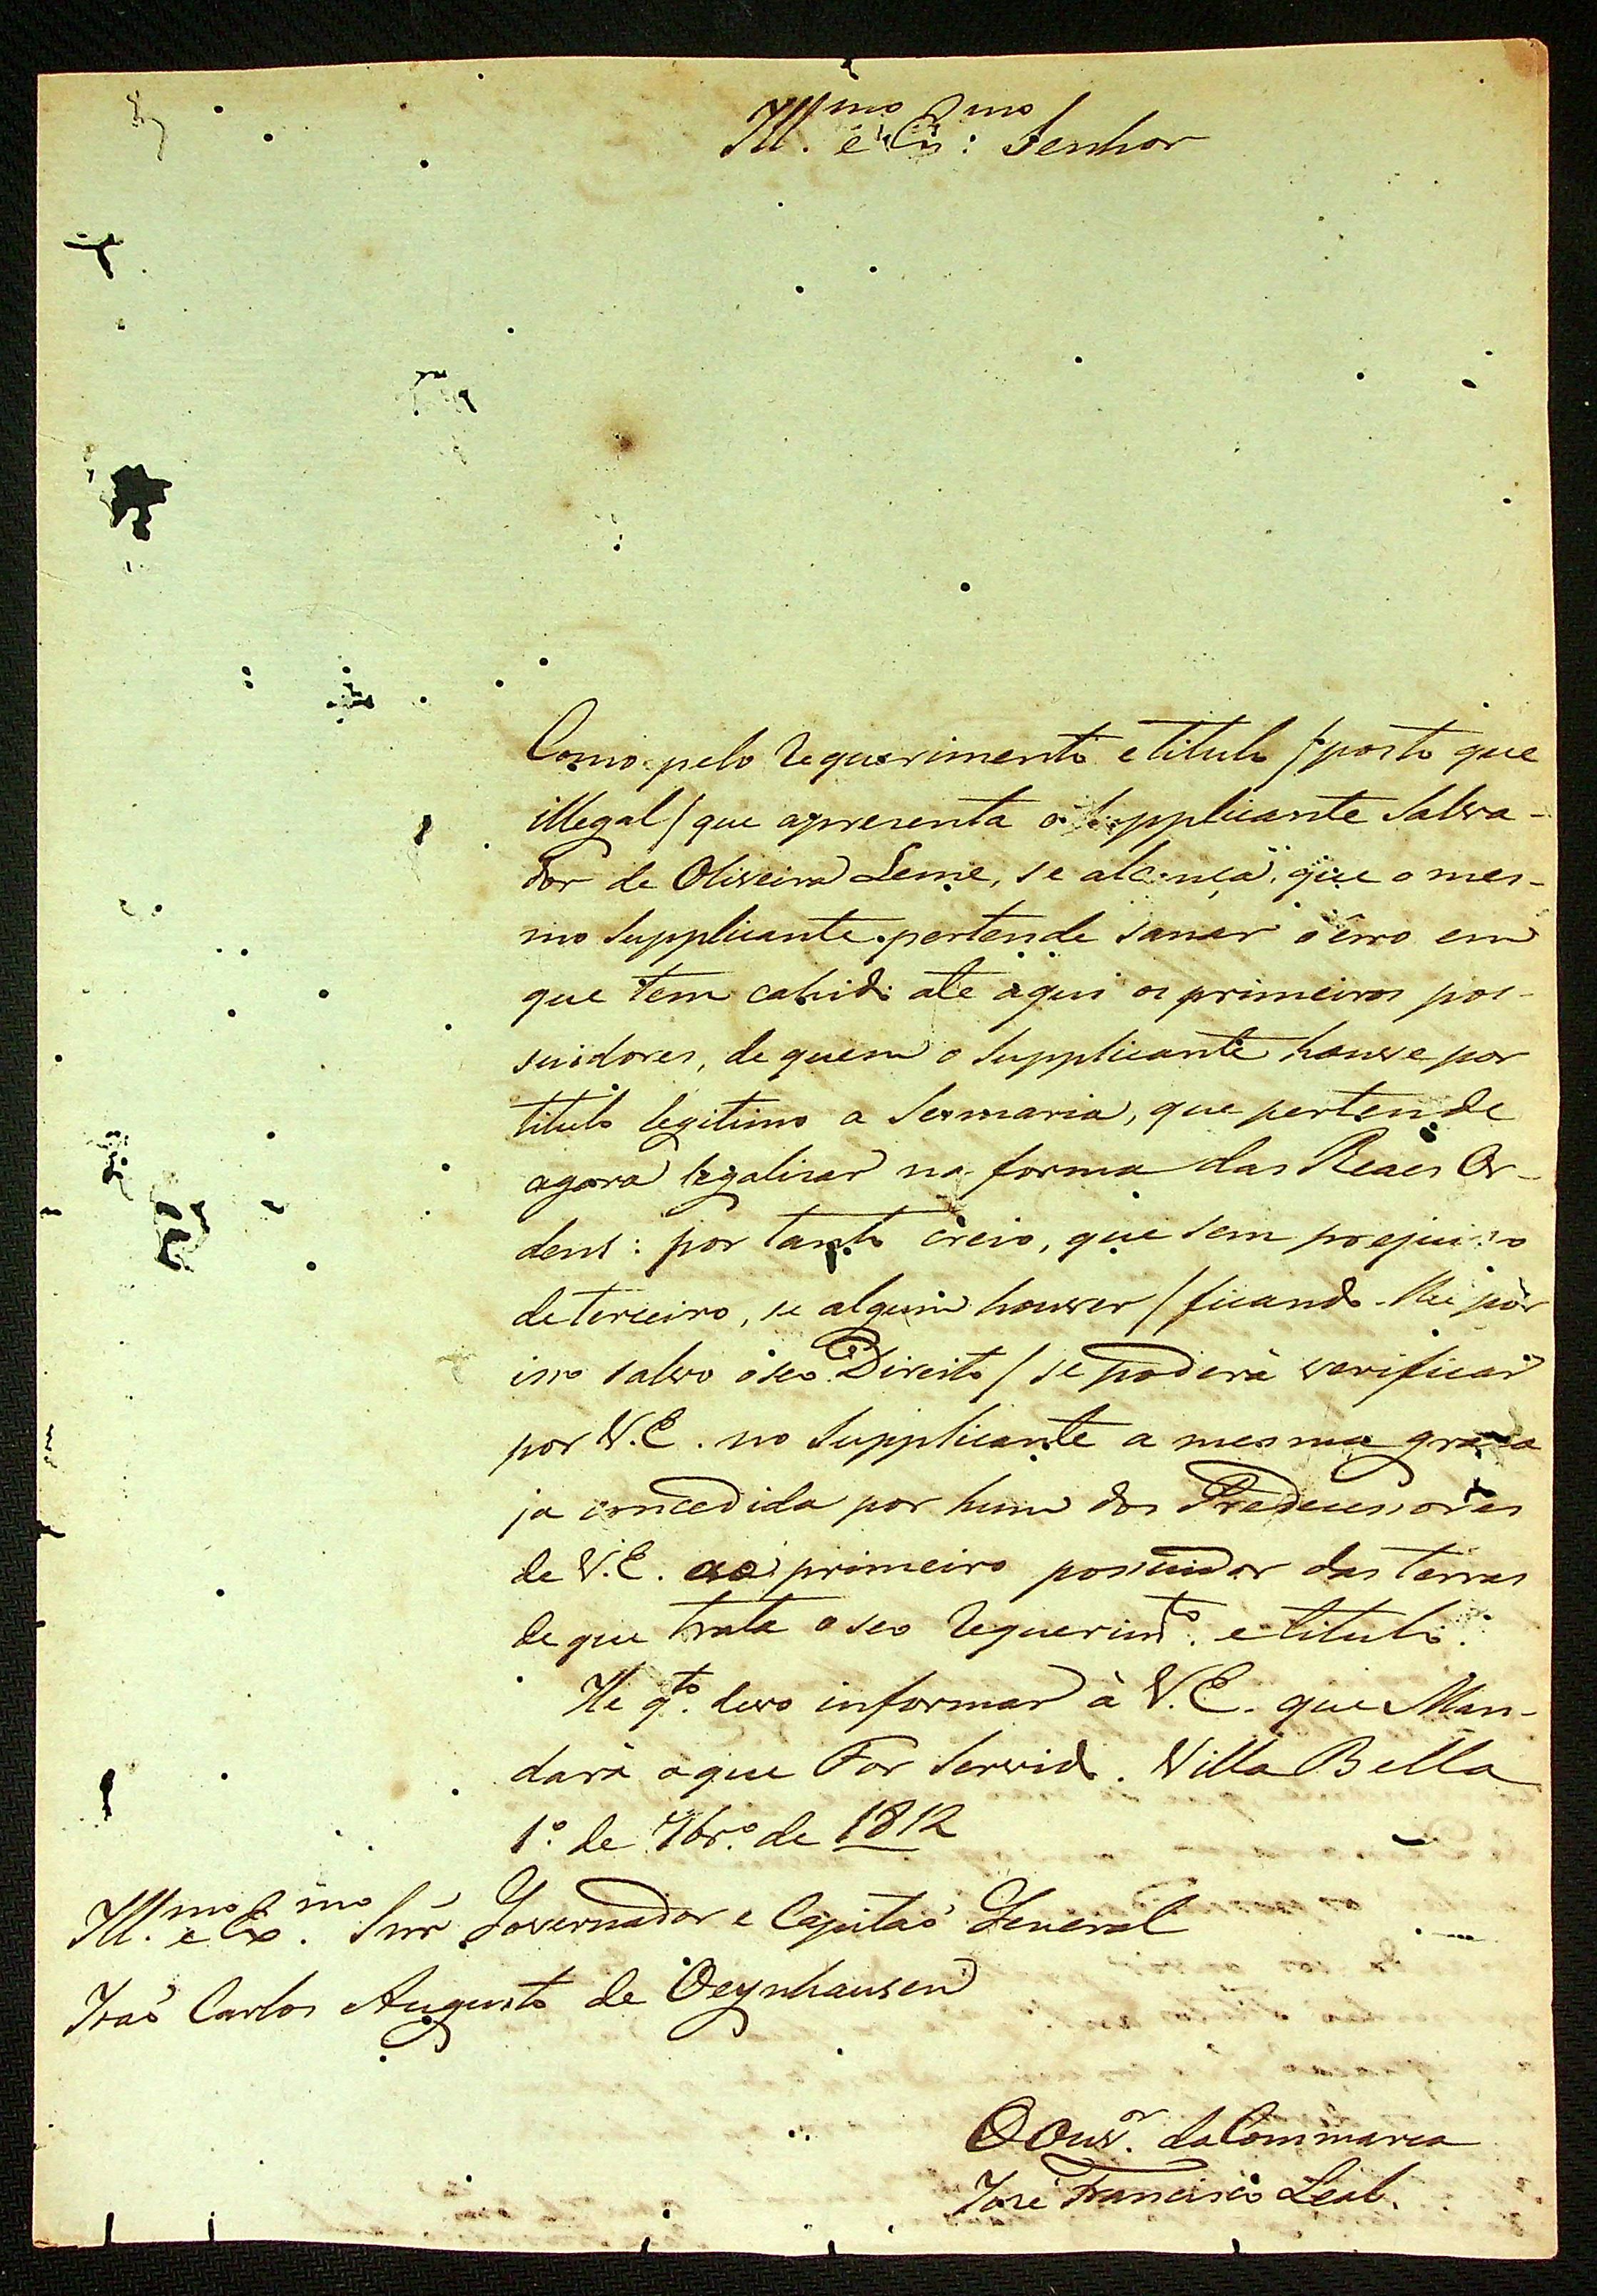 Ill.mo e Ex.mo Senhor
Como pelo requerimento e titulo / posto que
illegal / que apresenta o Supplicante Salva-
dor de Oliveira Leme, se alcança, que o mes-
mo Supplicante pertende sanar o érro em
que tem cahido ate aqui os primeiros pos-
suidores, de quem o Supplicante houve por
titulo legitimo a Sesmaria, que pertende
agora legalisar na forma das Reaes Or-
dens: por tanto creio, que sem prejuiso
de terceiro, se algum houver / ficando-lhe por
isso salvo o seo Direito / se poderà verificar
por V.E. no Supplicante a mesma graça
ja concedida por hum dos Predecessores
de V.E. ao primeiro possuidor das terras
de que trata o seo requerimto. e titulo.
He qto. devo informar à V.E. que Man-
darà o que For Servido. Villa Bella
1º. de 7brº. de 1812
Ill.mo e Ex.mo Snr̃ Governador e Capitaõ General
Joaõ Carlos Augusto de Oeynhausen
O Ouvor. da Commarca
José Francisco Leal.